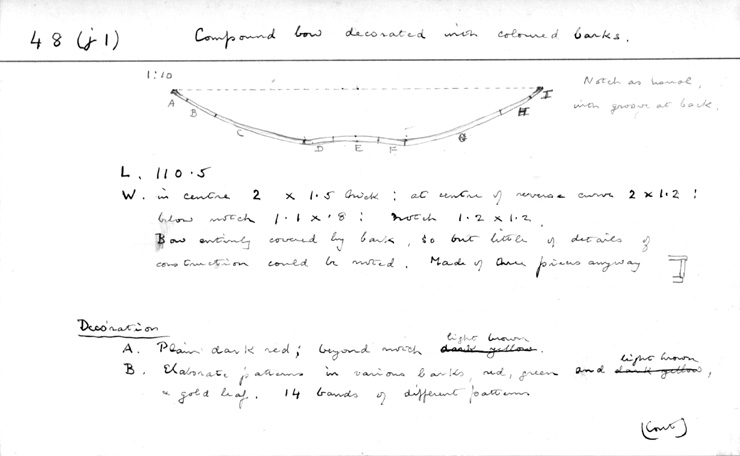 48 (j1) Compound bow decorated with coloured barks.
1:10
Notch as usual,
with groove at back.
A B C D E F G H I
L. 110.5
W. in centre 2 x 1.5 thick : at centre of reverse curve 2 x 1.2 :
below notch 1.1 x .8 : notch 1.2 x 1.2
Bow entirely covered by bark, so but little of details of
construction could be noted. Made of three pieces anyway
Decoration
light brown
A. Plain dark red; beyond notch dark yellow.
light brown
B. Elaborate patterns in various barks, red, green and dark yellow,
& gold leaf. 14 bands of different patterns
(Cont)